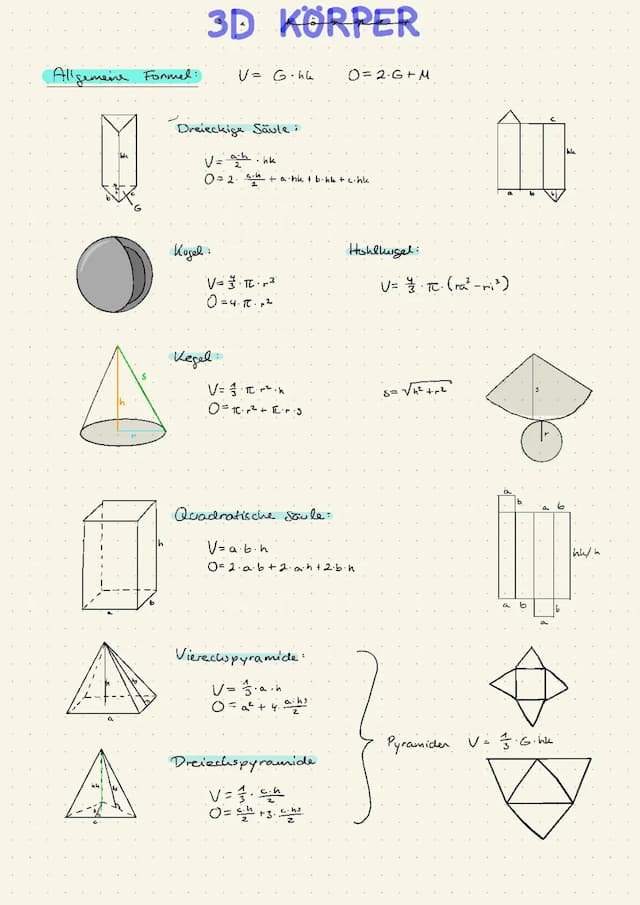 3D KÖRPER
Allgemeine Formel: V = G · hk O = 2 · G + M
Dreieckige Säule:
V = a·h/2 · hk
O = 2 · c·h/2 + a·hk + b·hk + c·hk
hk
b
c
G
c
hk
a
b
Kugel:
V = 4/3 · π · r³
O = 4 · π · r²
Hohlkugel:
V = 4/3 · π · (ra³ - ri³)
Kegel:
V = 1/3 · π · r² · h
O = π · r² + π · r · s
s = √h² + r²
s
h
r
s
r
Quadratische Säule:
V = a · b · h
O = 2 · a · b + 2 · a · h + 2 · b · h
h
b
a
a
b
a b
hk/h
a b
b
a
Viereckspyramide:
V = 1/3 · a · h
O = a² + 4 · a·hs/2
h
a
Pyramiden V = 1/3 · G · hk
Dreieckspyramide
V = 1/3 · c·h/2
O = c·h/2 + 3 · c·hs/2
hk
c